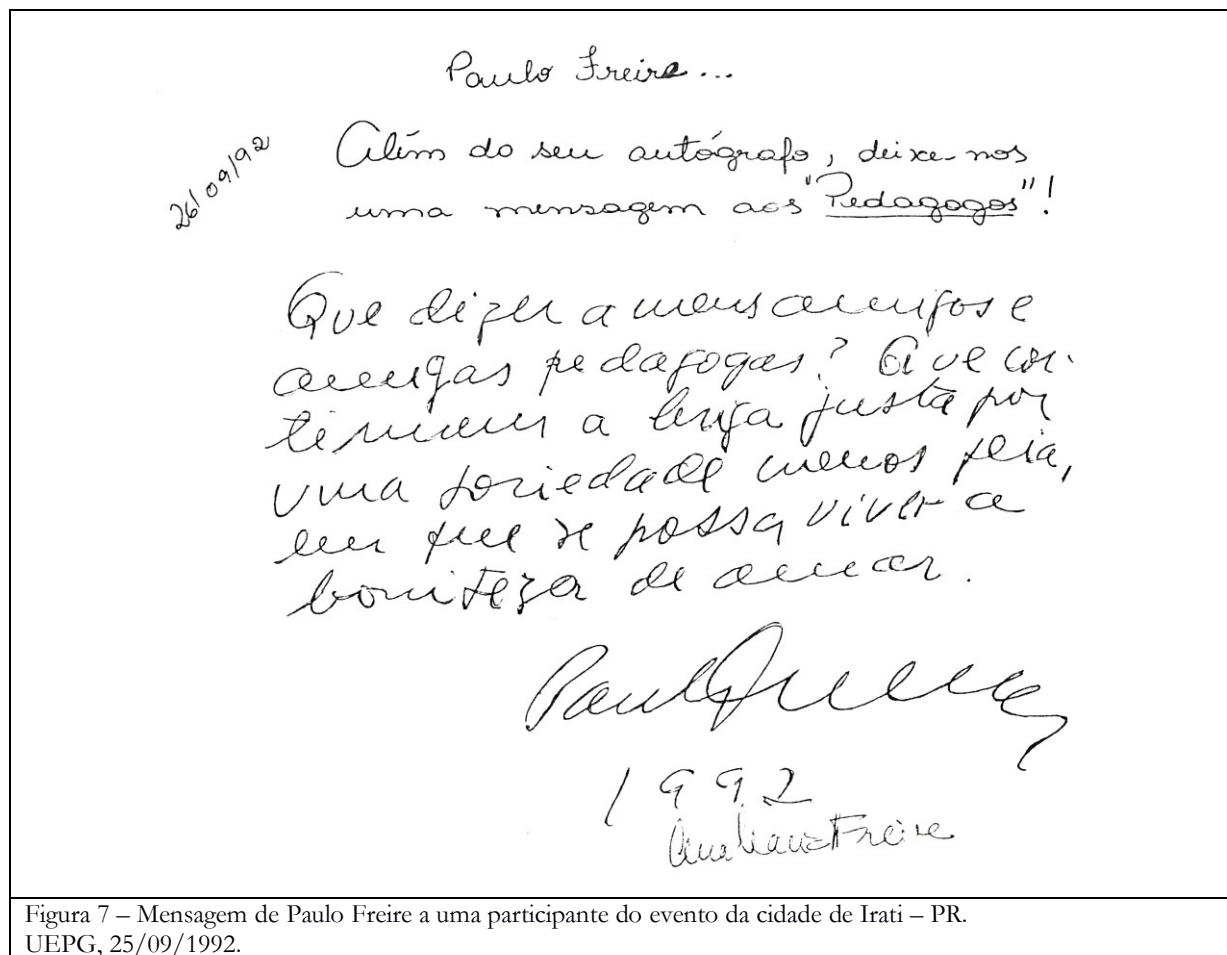 Paulo Freire...
26/09/92
Além do seu autógrafo, deixe-nos
uma mensagem aos "Pedagogos"!
Que dizer a meus amigos e
amigas pedagogas? Que con-
tinuem a briga justa por
uma sociedade menos feia,
em que se possa viver a
boniteza de amar.
Paulo Freire
1992
Ana Maria Freire
Figura 7 – Mensagem de Paulo Freire a uma participante do evento da cidade de Irati – PR.
UEPG, 25/09/1992.